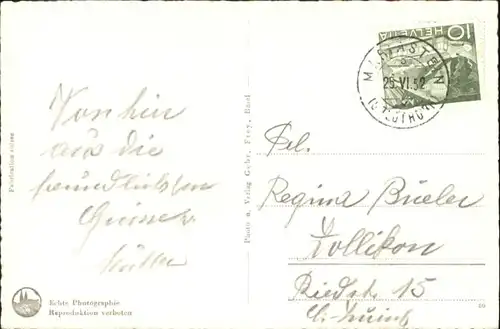 Von hier
aus die
freundlichsten
Grüsse
Mutter
Echte Photographie
Reproduktion verboten
Fabrication suisse
Photo u. Verlag Gebr. Frey, Basel
10 HELVETIA
MARIASTEIN
25.VI.52
(SOLOTHURN)
Frl.
Regina Bueler
Zollikon
Riedstr. 15